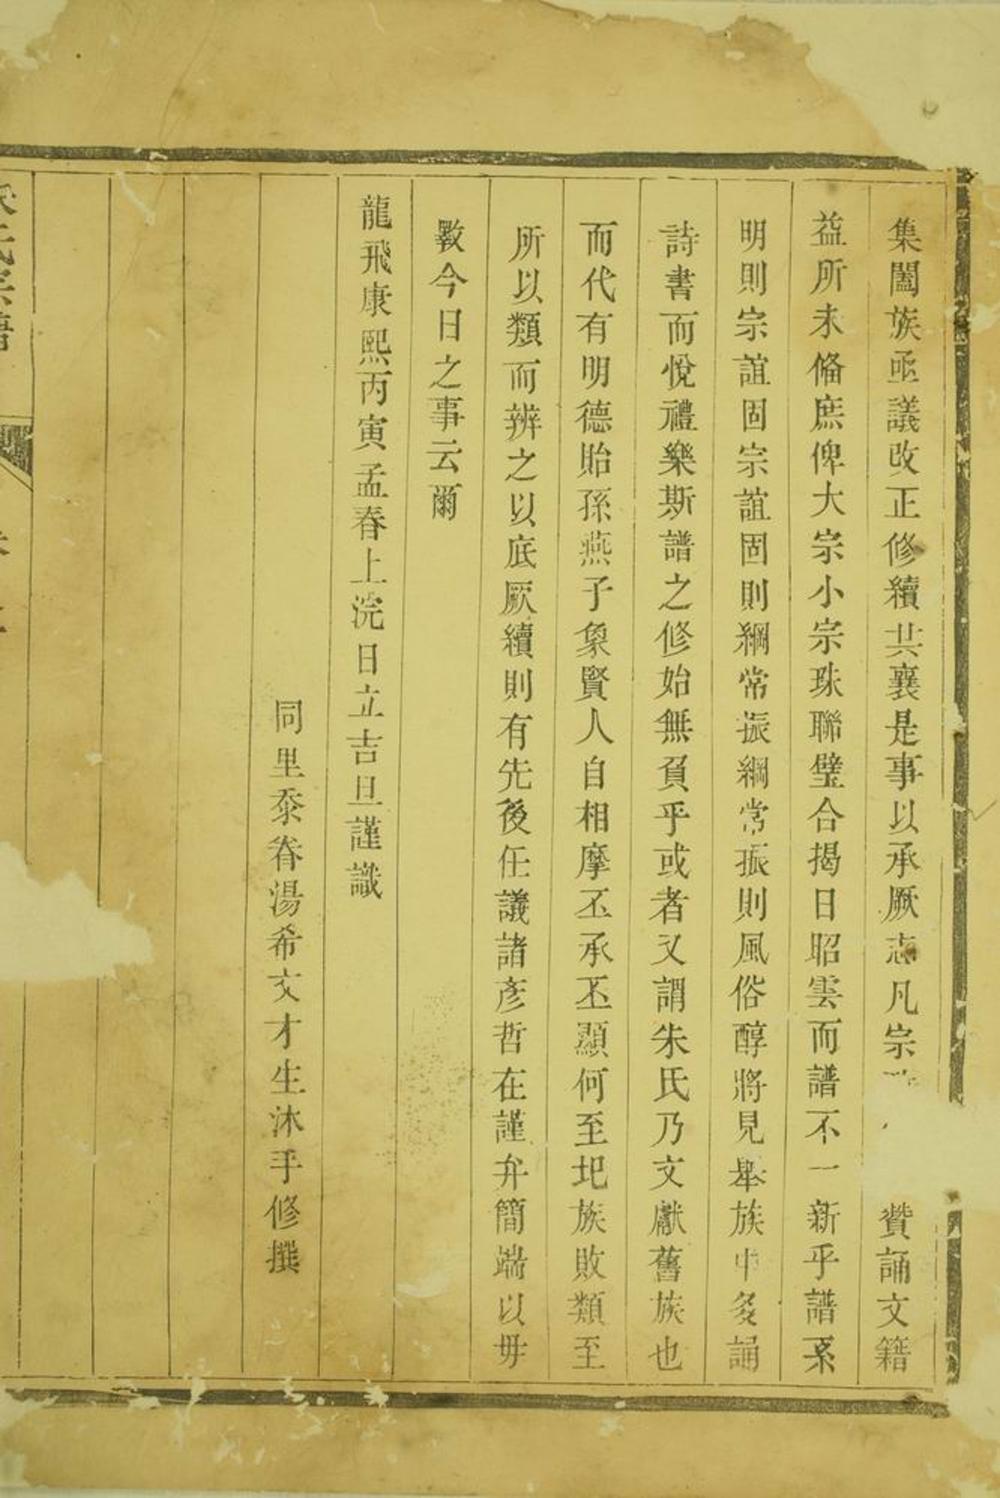 集闔族亟議改正修續共襄是事以承厥志凡宗贊誦文籍
益所未俻庶俾大宗小宗珠聯璧合揭日昭雲而譜不一新乎譜系
明則宗誼固宗誼固則綱常振綱常振則風俗醇將見舉族中多誦
詩書而悅禮樂斯譜之修始無負乎或者又謂朱氏乃文獻舊族也
而代有明德貽孫燕子象賢人自相摩丕承丕顯何至圯族敗類至
所以類而辨之以底厥續則有先後任議諸彥哲在謹弁簡端以毋
斁今日之事云爾
龍飛康熙丙寅孟春上浣日立吉旦謹識
同里忝眷湯希文才生沐手修撰
氏宗譜